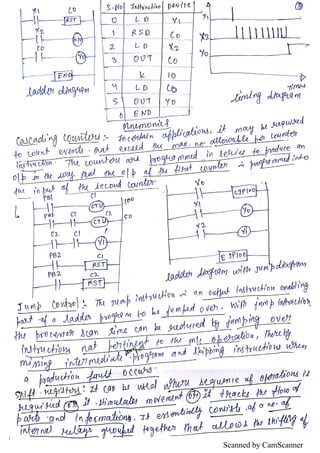 X1 C0
RST
X2
C0
C0 Y0
END
ladder diagram
S.No Instruction Device
0 LD X1
1 RSD C0
2 LD X2
3 OUT C0
K 10
4 LD C0
5 OUT Y0
6 END
Mnemonics
X1
X2
Y0
Times
timing diagram
Cascading Counters :- In certain applications, it may be required
to count events that exceed the max. no. allowable per counter
instruction. The counters are programmed in series to produce an
o/p in the way that the o/p of the first counter is programmed into
the input of the second counter.
PB1 C1
CTU 100
PB1 C1 C2
CTU 50
C2 C1 Y1
PB2 C1
RST
PB2 C2
RST
Y0
CJP100
X1
Y0
X2
Y1
EJP100
ladder diagram with jump diagram
Jump Control :- The jump instruction is an output instruction enabling
part of a ladder program to be jumped over. With jump instruction
the processor scan time can be reduced by jumping over
instructions not pertinent to the m/c operation, thereby
missing intermediate program and skipping instructions when
a production fault occurs.
Shift registers :- It can be used where sequence of operations is
required OR it stimulates movement OR it tracks the flow of
parts and information. It essentially consists of a no. of
internal relays grouped together that allows the shifting of
Scanned by CamScanner